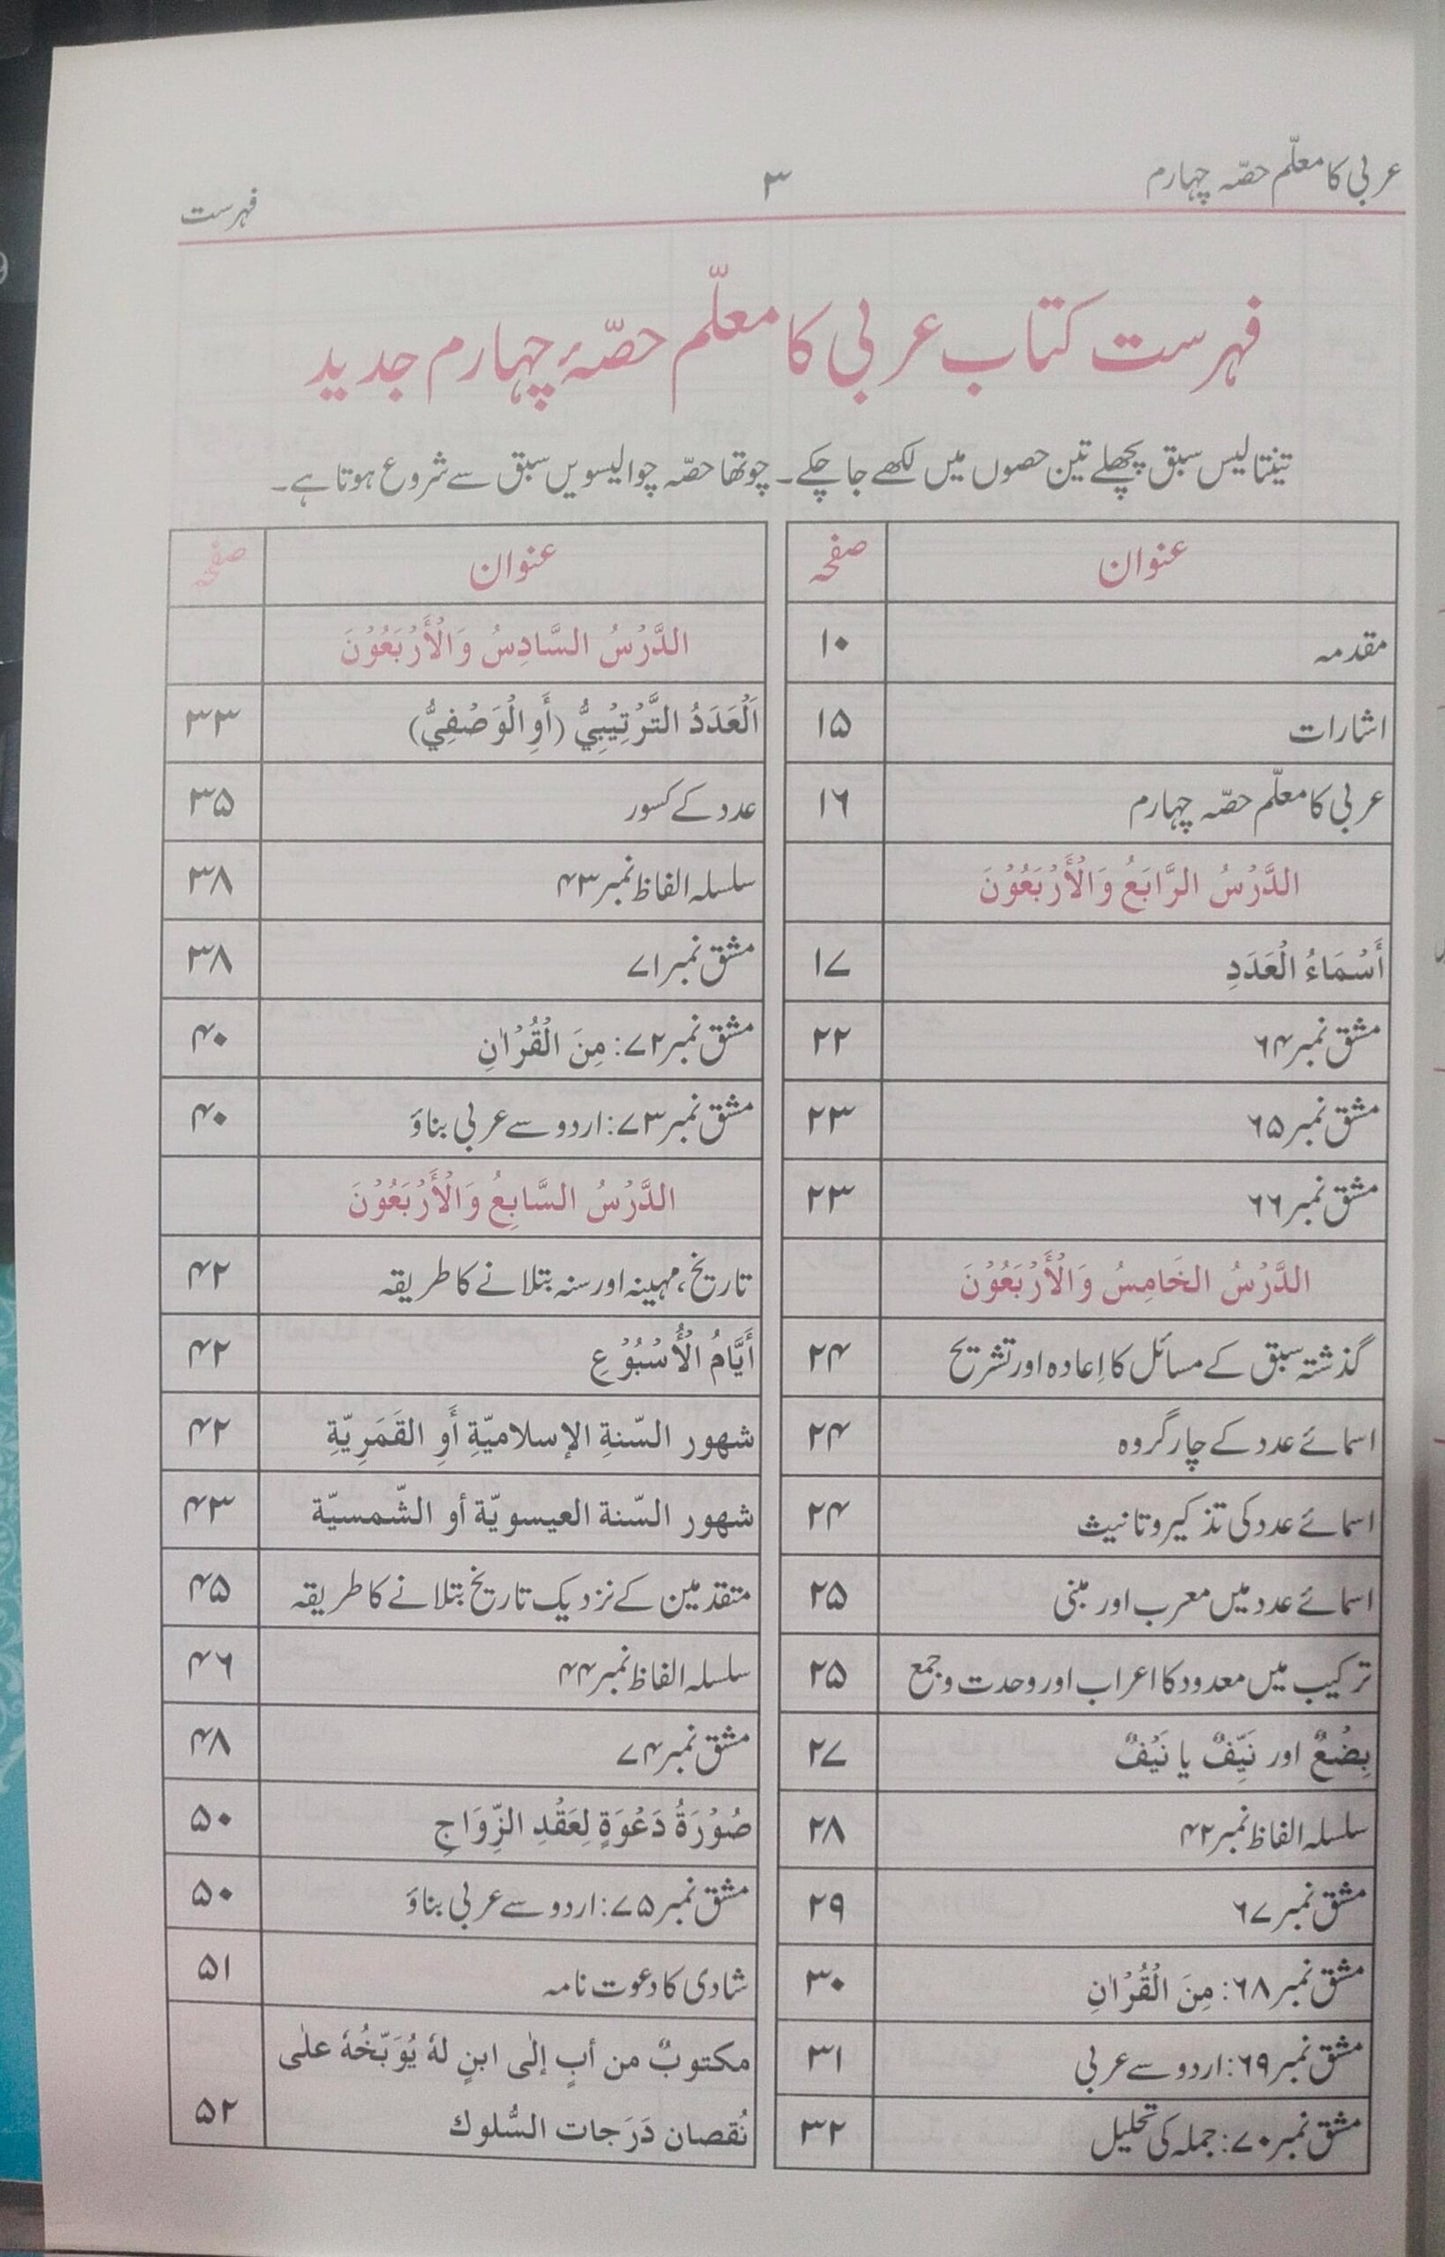 عربی کا معلّم حصّہ چہارم ۳ فہرست
فہرست کتاب عربی کا معلّم حصّۂ چہارم جدید
تینتالیس سبق پچھلے تین حصوں میں لکھے جا چکے۔ چوتھا حصّہ چوالیسویں سبق سے شروع ہوتا ہے۔
عنوان صفحہ
مقدمہ ۱۰
اشارات ۱۵
عربی کا معلّم حصّہ چہارم ۱۶
الدَّرْسُ الرَّابَعُ وَالْأَرْبَعُوْنَ
أَسْمَاءُ الْعَدَدِ ۱۷
مشق نمبر ۶۴ ۲۲
مشق نمبر ۶۵ ۲۳
مشق نمبر ۶۶ ۲۳
الدَّرْسُ الخَامِسُ وَالْأَرْبَعُوْنَ
گذشتہ سبق کے مسائل کا اِعادہ اور تشریح ۲۴
اسمائے عدد کے چار گروہ ۲۴
اسمائے عدد کی تذکیر و تانیث ۲۴
اسمائے عدد میں معرب اور مبنی ۲۵
ترکیب میں معدود کا اعراب اور وحدت و جمع ۲۵
بِضْعٌ اور نَیِّفٌ یا نَیْفٌ ۲۷
سلسلہ الفاظ نمبر ۴۲ ۲۸
مشق نمبر ۶۷ ۲۹
مشق نمبر ۶۸: مِنَ الْقُرْاٰنِ ۳۰
مشق نمبر ۶۹: اردو سے عربی ۳۱
مشق نمبر ۷۰: جملہ کی تحلیل ۳۲
عنوان صفحہ
الدَّرْسُ السَّادِسُ وَالْأَرْبَعُوْنَ
اَلْعَدَدُ التَّرْتِيْبِيُّ (أَوِ الْوَصْفِيُّ) ۳۳
عدد کے کسور ۳۵
سلسلہ الفاظ نمبر ۴۳ ۳۸
مشق نمبر ۷۱ ۳۸
مشق نمبر ۷۲: مِنَ الْقُرْاٰنِ ۴۰
مشق نمبر ۷۳: اردو سے عربی بناؤ ۴۰
الدَّرْسُ السَّابِعُ وَالْأَرْبَعُوْنَ
تاریخ، مہینہ اور سنہ بتلانے کا طریقہ ۴۲
أَيَّامُ الْأُسْبُوْعِ ۴۲
شهور السّنةِ الإسلاميّةِ أَوِ القَمَرِيّةِ ۴۲
شهور السّنة العيسويّة أو الشّمسيّة ۴۳
متقدمین کے نزدیک تاریخ بتلانے کا طریقہ ۴۵
سلسلہ الفاظ نمبر ۴۴ ۴۶
مشق نمبر ۷۴ ۴۸
صُوْرَةُ دَعْوَةٍ لِعَقْدِ الزِّوَاجِ ۵۰
مشق نمبر ۷۵: اردو سے عربی بناؤ ۵۰
شادی کا دعوت نامہ ۵۱
مكتوبٌ من أبٍ إلٰى ابنٍ لهٗ يُوَبّخُهٗ علٰى
نُقصان دَرَجات السُّلوك ۵۲